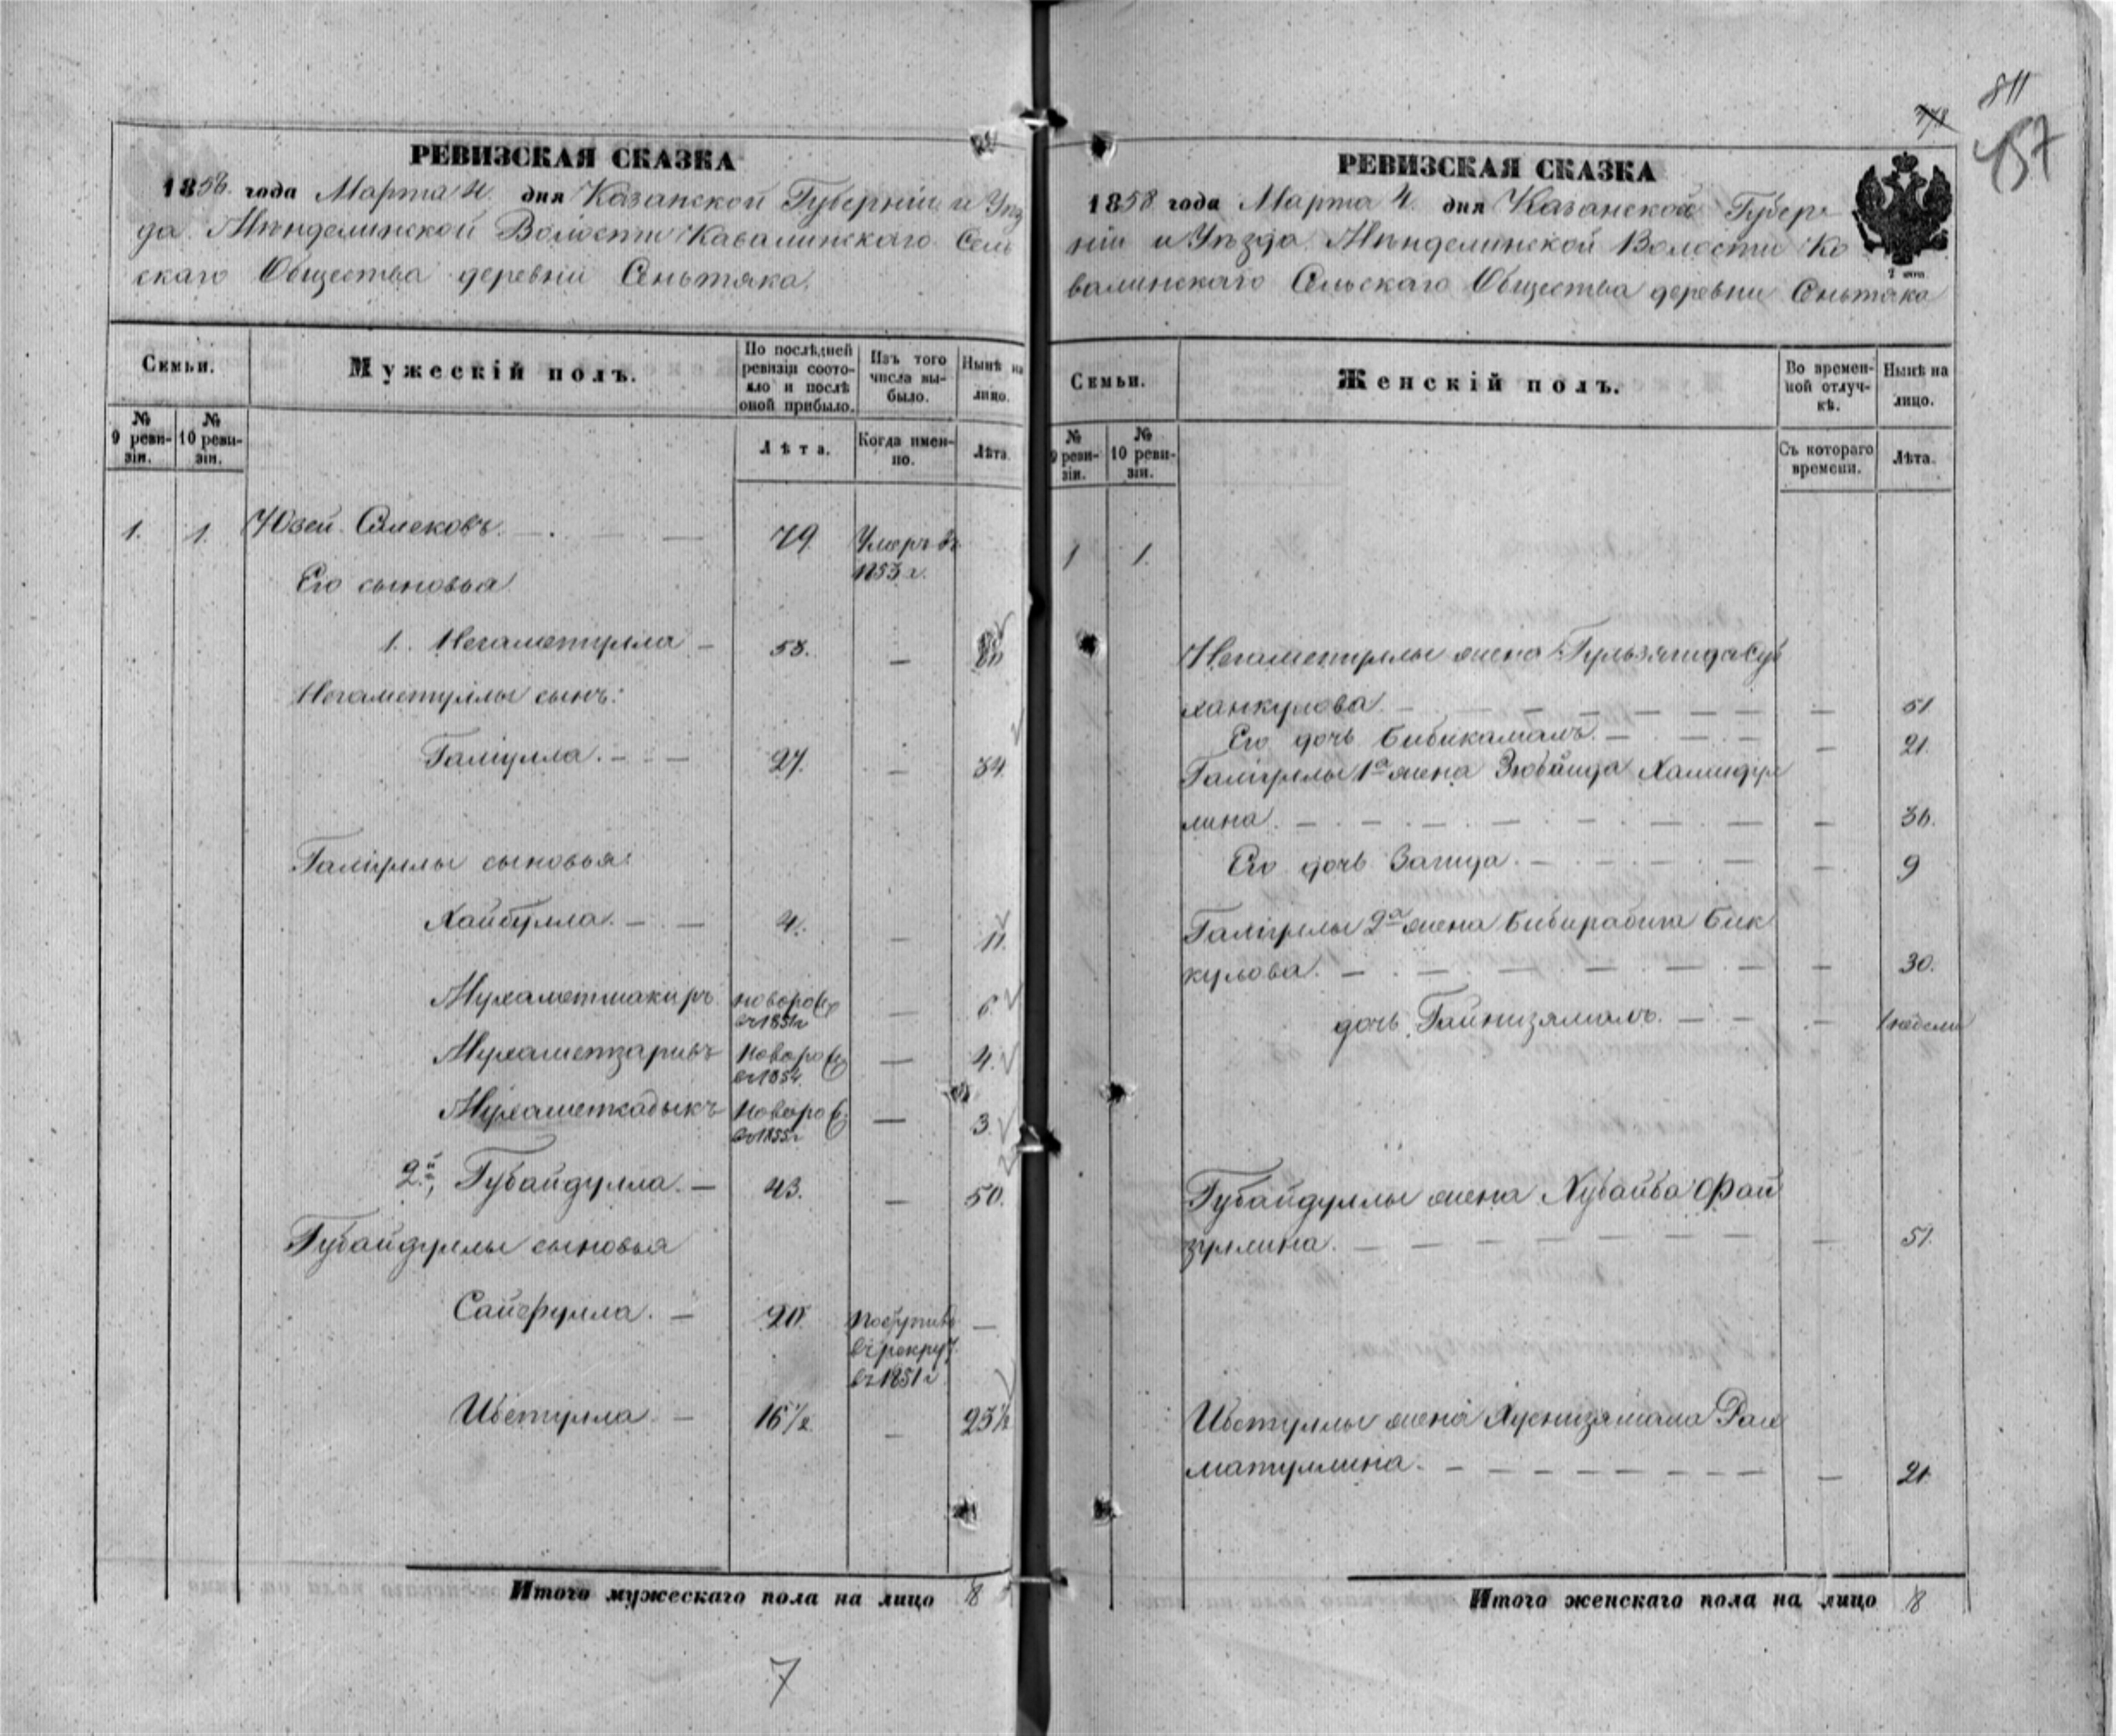 811
457
РЕВИЗСКАЯ СКАЗКА
1858 года Марта 4 дня Казанской Губерніи и Уѣз
да Мѣнделинской Волости Кавалинскаго Сель
скаго Общества деревни Сеньтяка.
Семьи.
Мужескій полъ.
По послѣдней ревизіи состояло и послѣ оной прибыло.
Изъ того числа выбыло.
Нынѣ на лицо.
№ 9 ревизіи.
№ 10 ревизіи.
Лѣта.
Когда именно.
Лѣта.
1. 1. Юзей Смековъ. 79. Умеръ въ
1853 г.
Его сыновья
1. Негаметулла — 53. —
Негаметуллы сынъ:
Галіулла. — 27. — 34.
Галіуллы сыновья:
Хайбулла. — 4. — 11.
Мухаметшакиръ новорож — 6.
въ 1851 г
Мухаметзарипъ новорож — 4.
въ 1854.
Мухаметсадыкъ новорож — 3.
въ 1855 г
2й, Губайдулла. — 43. — 50.
Губайдуллы сыновья
Сайфулла. — 20. поступилъ —
въ рекруты
въ 1851 г
Ибетулла — 16½ — 23½
Итого мужескаго пола на лицо 8
7
РЕВИЗСКАЯ СКАЗКА
1858 года Марта 4 дня Казанской Губер
ніи и Уѣзда Мѣнделинской Волости Ко
валинскаго Сельскаго Общества деревни Сеньтяка
Семьи.
Женскій полъ.
Во временной отлучкѣ.
Нынѣ на лицо.
№ 9 ревизіи.
№ 10 ревизіи.
Съ котораго времени.
Лѣта.
1 1.
Негаметуллы жена Гульзягида Суб
ханкулова. — 51
Его дочь Бибикамалъ. — 21.
Галіуллы 1я жена Зюбаида Хамидул
лина. — 36.
Его дочь Загида. — 9
Галіуллы 2я жена Бибирабига Бик
кулова. — 30.
дочь Гайнизямалъ. — 1 недели
Губайдуллы жена Хубайба Фай
зуллина. — 51.
Ибетуллы жена Хуснизямала Рах
матуллина. — 21.
Итого женскаго пола на лицо 8